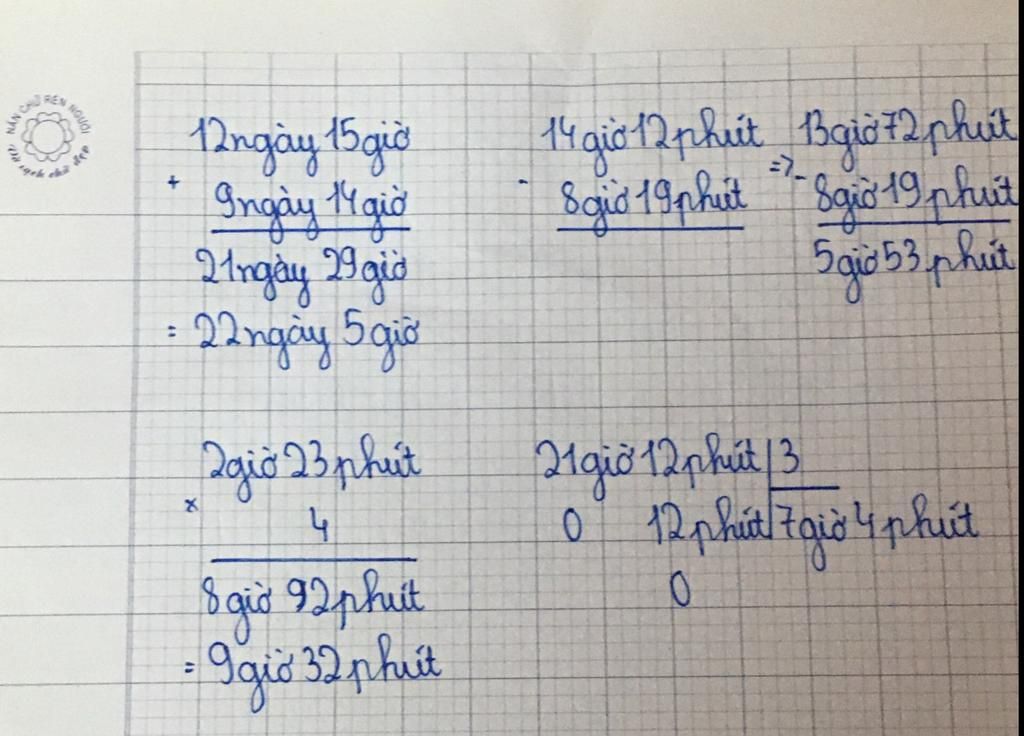 NẮN CHỮ RÈN NGƯỜI
Vở sạch chữ đẹp
12ngày 15giờ
+
9ngày 14giờ
21ngày 29giờ
= 22ngày 5giờ
14giờ 12phút
-
8giờ 19phút
=> 13giờ 72phút
-
8giờ 19phút
5giờ 53phút
2giờ 23phút
×
4
8giờ 92phút
= 9giờ 32phút
21giờ 12phút 3
0 12phút 7giờ 4phút
0